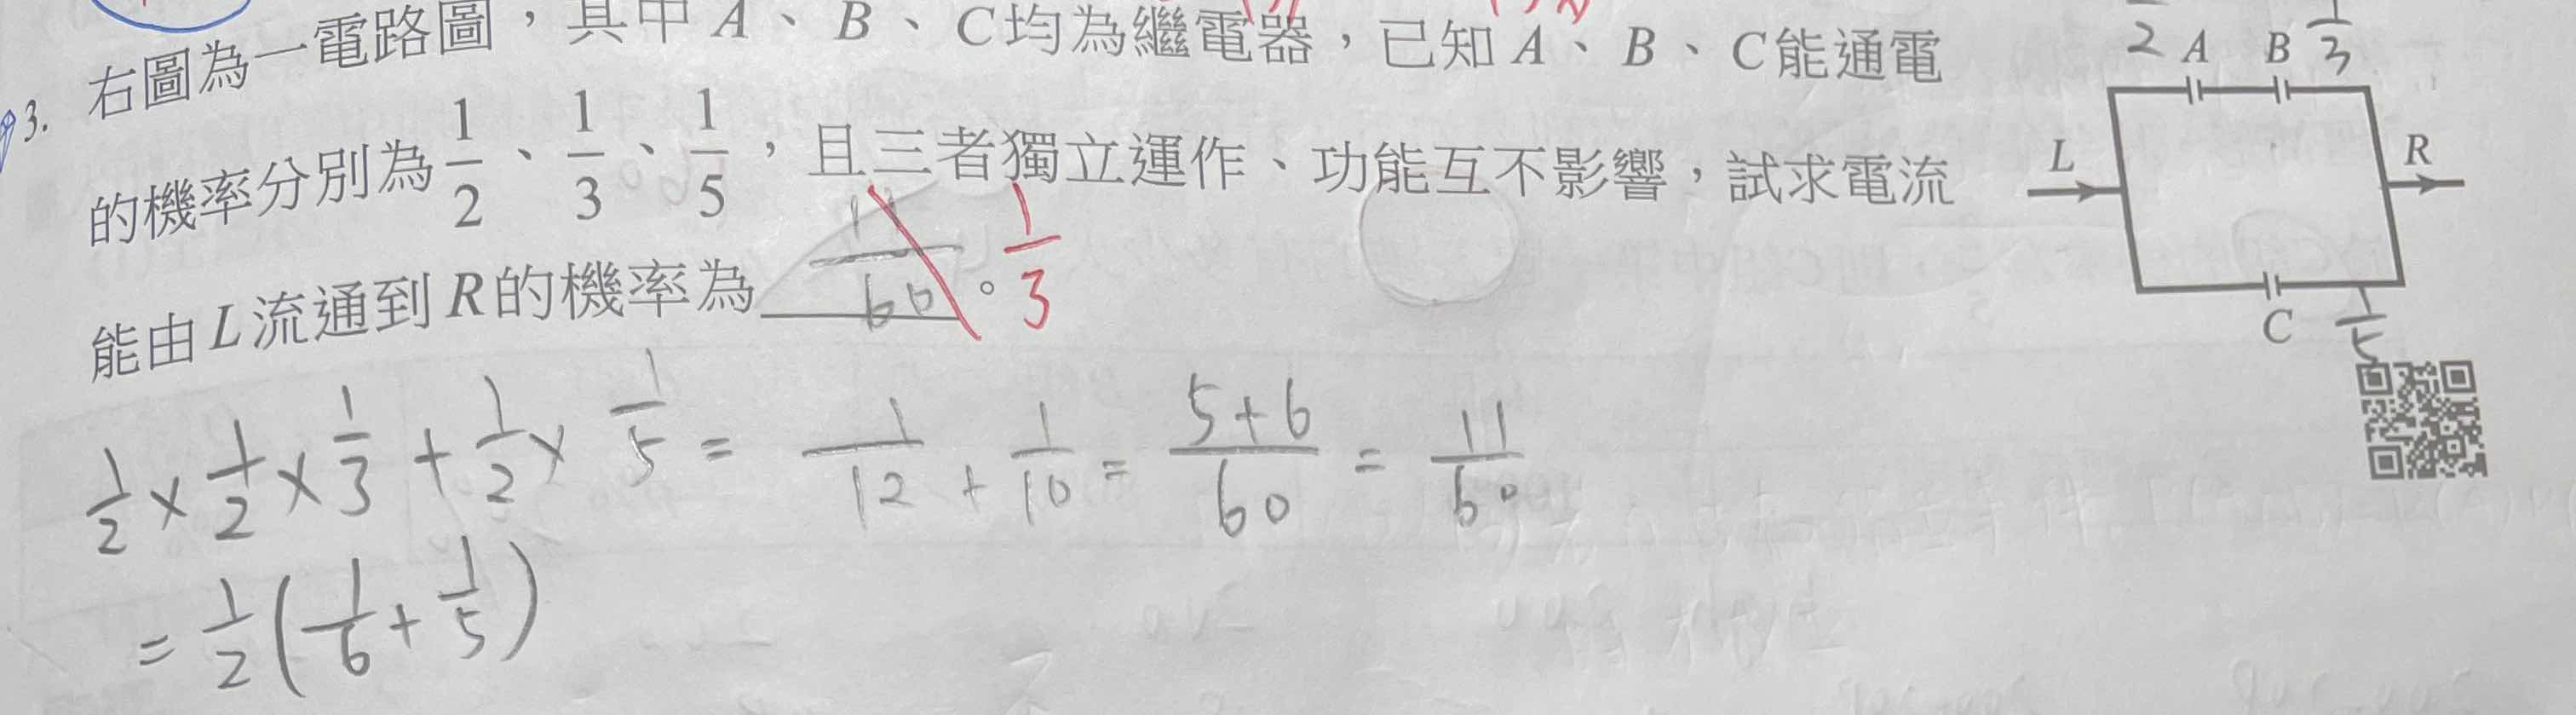 3. 右圖為一電路圖，其中 A、B、C均為繼電器，已知 A、B、C能通電
的機率分別為 1/2、1/3、1/5，且三者獨立運作、功能互不影響，試求電流
能由L流通到R的機率為 11/60。 1/3
2 A B 1/3
L R
C 1/5
1/2 × 1/2 × 1/3 + 1/2 × 1/5 = 1/12 + 1/10 = 5+6/60 = 11/60
= 1/2 (1/6 + 1/5)